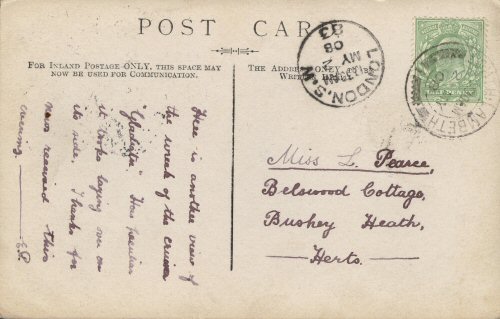 POST CARD
FOR INLAND POSTAGE ONLY, THIS SPACE MAY
NOW BE USED FOR COMMUNICATION.
THE ADDRESS ONLY
WRIT
LONDON. S.W.
MY 2
08
83
LAMBETH
HALFPENNY
Here is another view of
the wreck of the cruiser
"Gladiator" How peculiar
it looks laying over on
its side. Thanks for
news received this
evening
Miss L. Pearce,
Belswood Cottage,
Bushey Heath,
Herts.